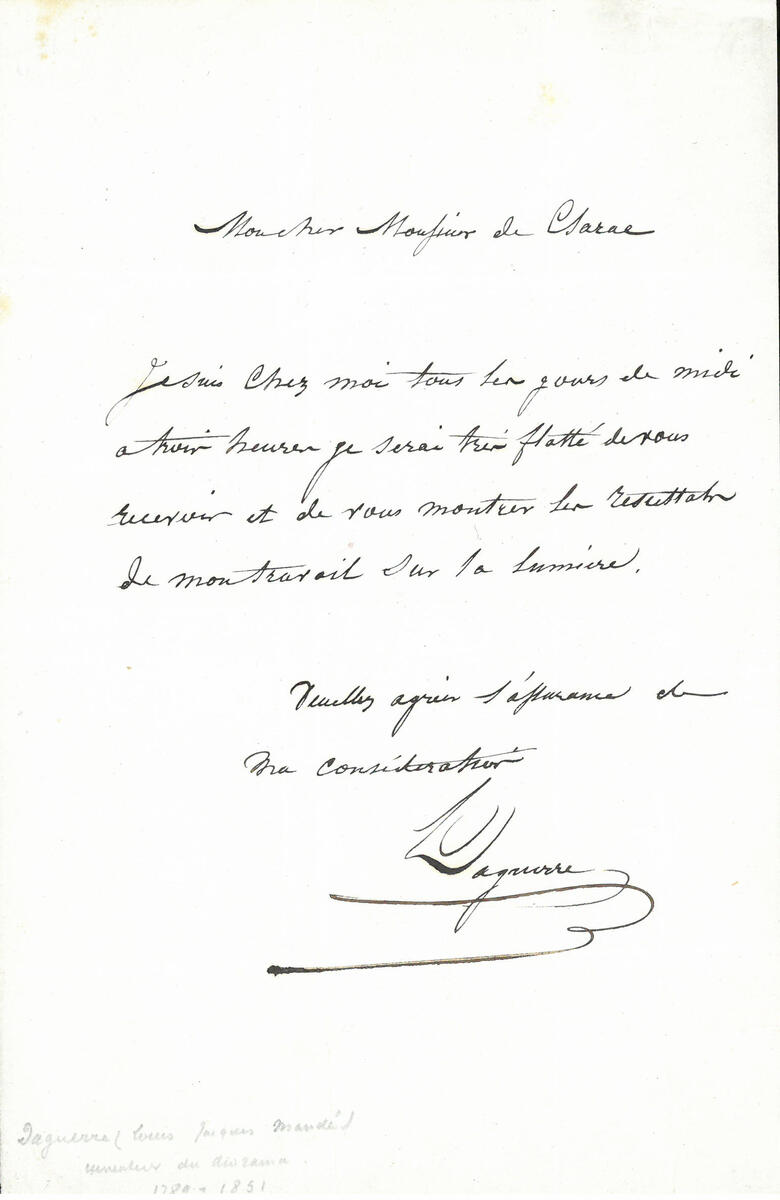 Mon cher Monsieur de Clarac
Je suis chez moi tous les jours de midi
a trois heures je serai très flatté de vous
recevoir et de vous montrer les resultats
de mon travail sur la lumière.
Veuillez agréer l'assurance de
ma considération
Daguerre
Daguerre (Louis Jacques Mandé)
inventeur du diorama.
1789 - 1851